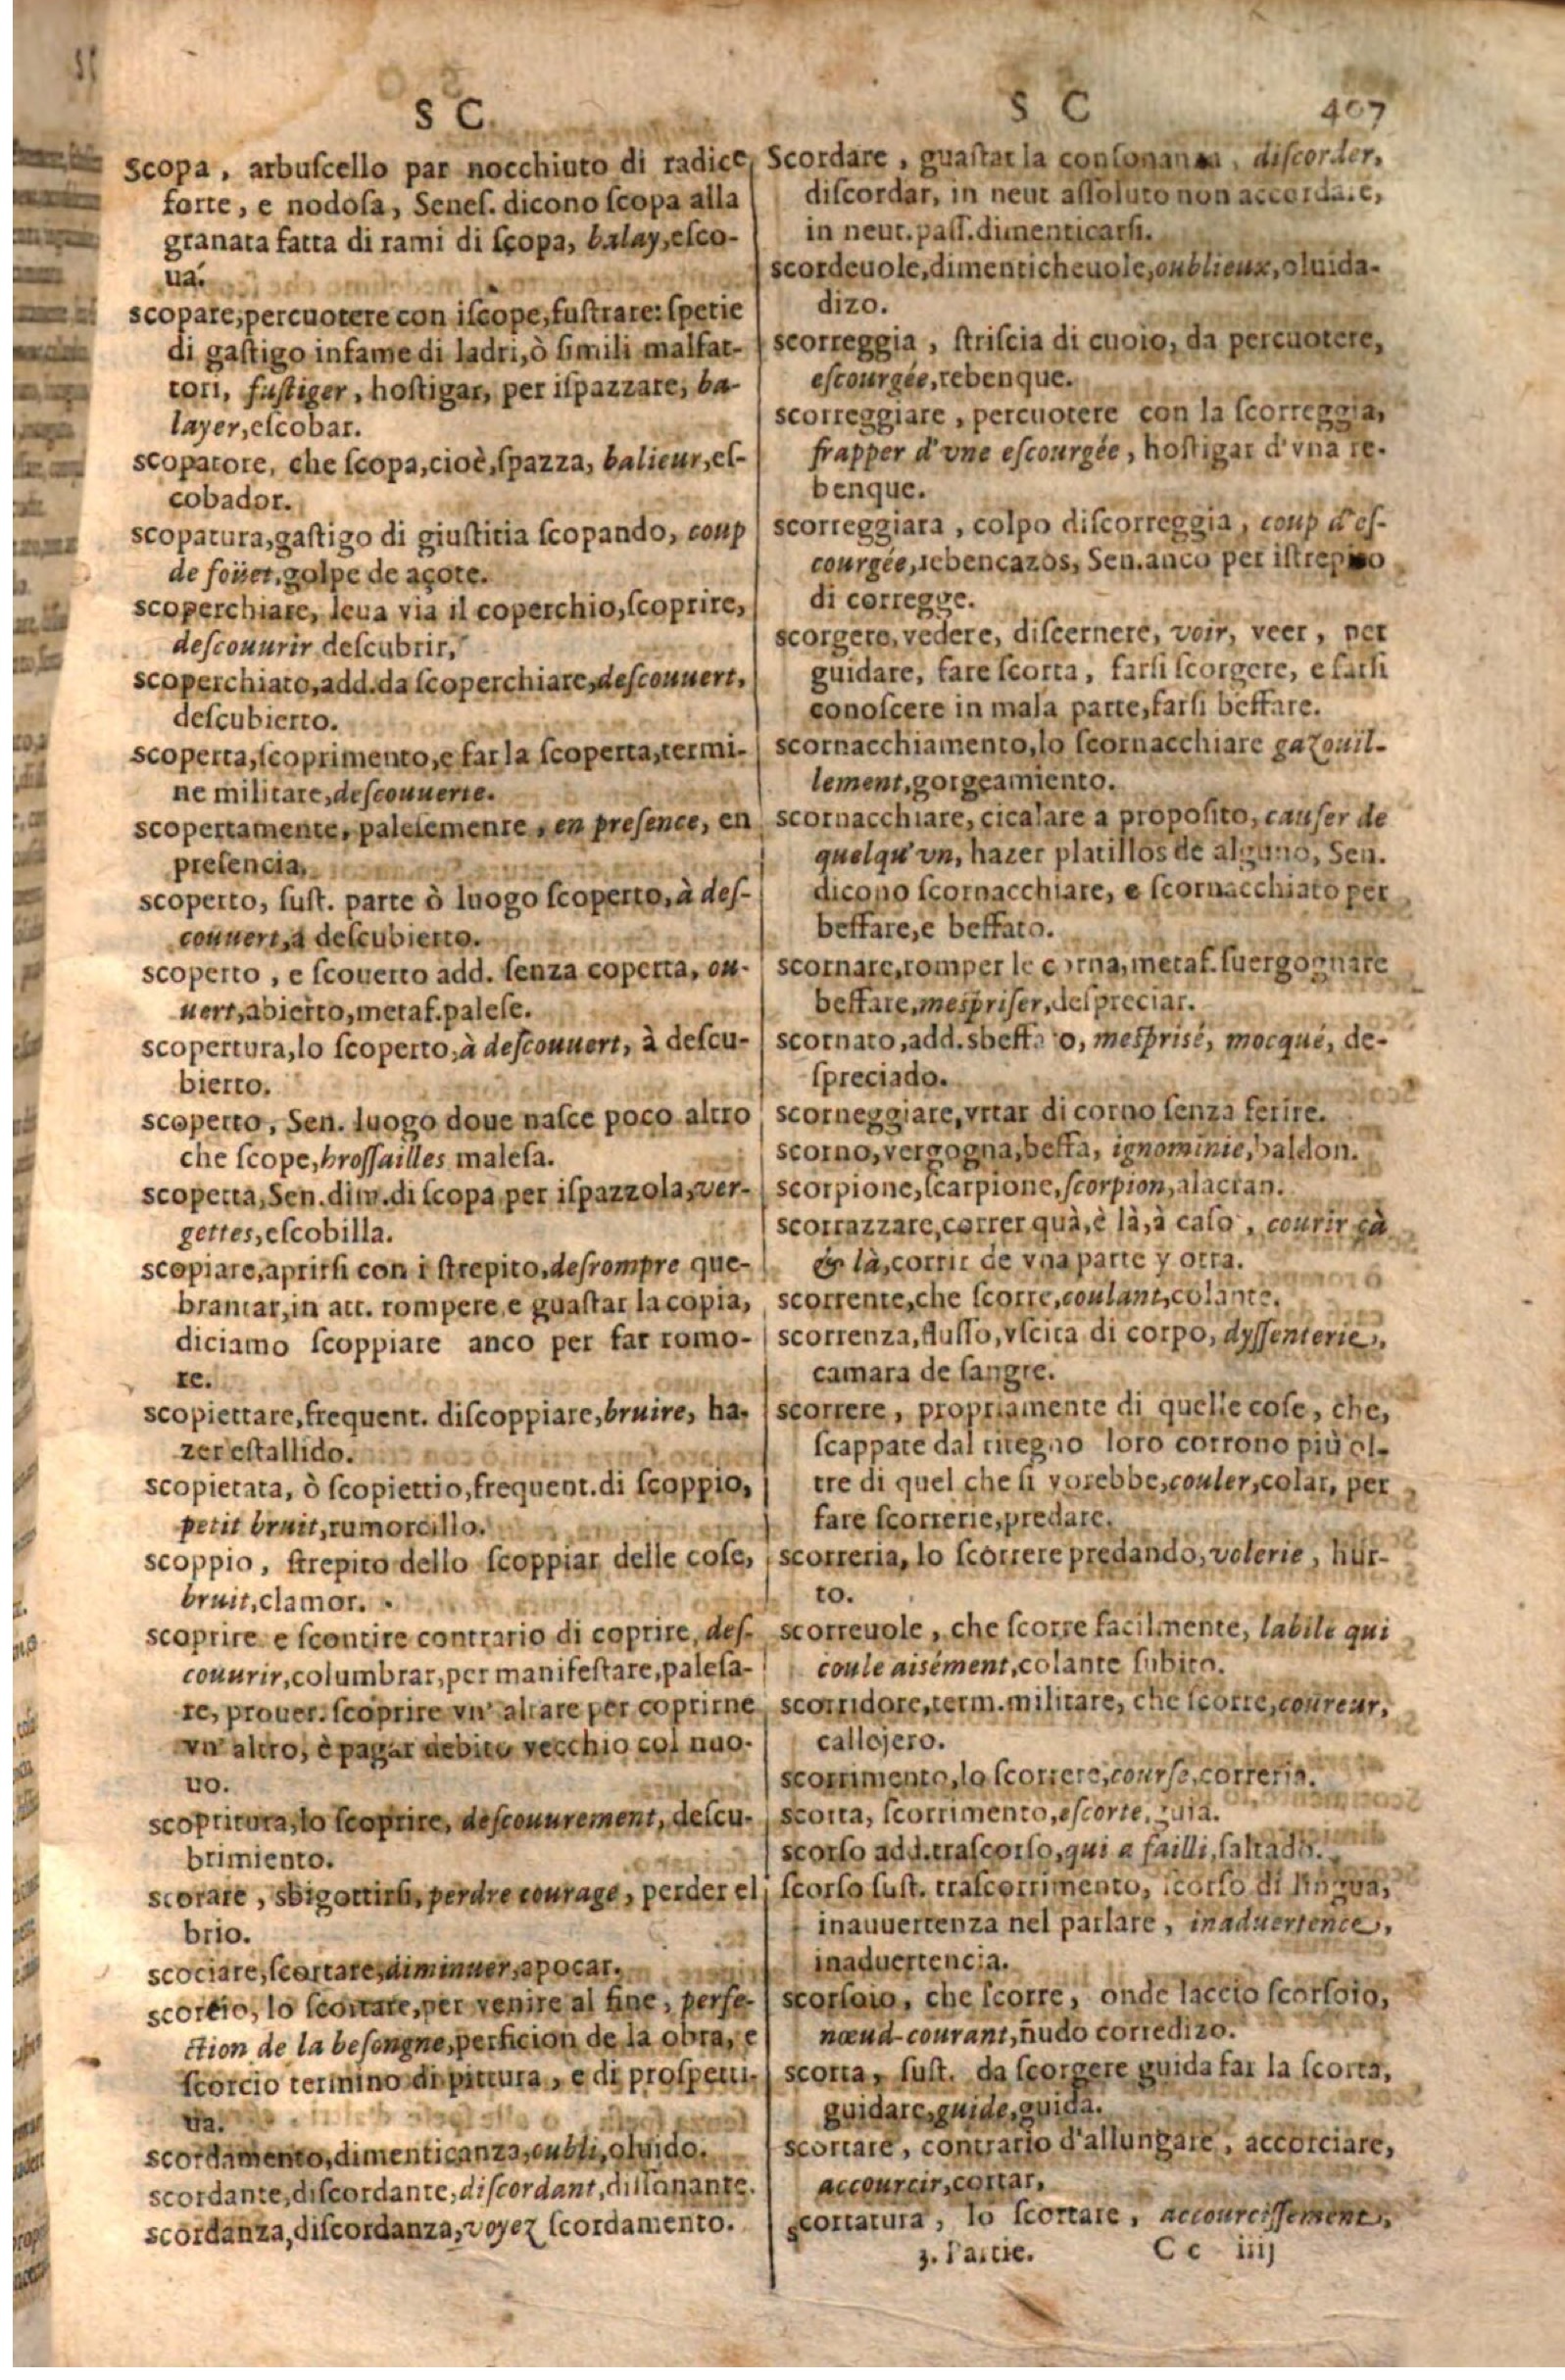 S C
Scopa, arbuſcello par nocchiuto di radice
forte, e nodoſa, Seneſ. dicono ſcopa alla
granata fatta di rami di ſcopa, balay, eſco-
ua.
scopare, percuotere con iſcope, fuſtrare: ſpetie
di gaſtigo infame di ladri, ò ſimili malfat-
tori, fuſtiger, hoſtigar, per iſpazzare, ba-
layer, eſcobar.
scopatore, che ſcopa, cioè, ſpazza, balieur, eſ-
cobador.
scopatura, gaſtigo di giuſtitia ſcopando, coup
de foüet, golpe de açote.
scoperchiare, leua via il coperchio, ſcoprire,
deſcouurir deſcubrir,
scoperchiato, add. da ſcoperchiare, deſcouuert,
deſcubierto.
scoperta, ſcoprimento, e far la ſcoperta, termi-
ne militare, deſcouuerte.
scopertamente, paleſemente, en preſence, en
preſencia.
scoperto, ſuſt. parte ò luogo ſcoperto, à deſ-
couuert, a deſcubierto.
scoperto, e ſcouerto add. ſenza coperta, ou-
uert, abierto, metaf. paleſe.
scopertura, lo ſcoperto, à deſcouuert, à deſcu-
bierto.
scoperto, Sen. luogo doue naſce poco altro
che ſcope, broſſailles maleſa.
scopetta, Sen. dim. di ſcopa per iſpazzola, ver-
gettes, eſcobilla.
scopiare, aprirſi con i ſtrepito, deſrompre que-
brantar, in att. rompere e guaſtar la copia,
diciamo ſcoppiare anco per far romo-
re.
scopiettare, frequent. diſcoppiare, bruire, ha-
zer eſtallido.
scopietata, ò ſcopiettio, frequent. di ſcoppio,
petit bruit, rumorcillo.
scoppio, ſtrepito dello ſcoppiar delle coſe,
bruit, clamor.
scoprire e ſcourire contrario di coprire, deſ-
couurir, columbrar, per manifeſtare, paleſa-
re, prouer. ſcoprire vn' altare per coprirne
vn' altro, è pagar debito vecchio col nuo-
uo.
scopritura, lo ſcoprire, deſcouurement, deſcu-
brimiento.
scorare, sbigottirſi, perdre courage, perder el
brio.
scociare, ſcortare, diminuer, apocar.
scorcio, lo ſcortare, per venire al fine, perfe-
ction de la beſongne, perficion de la obra, e
ſcorcio termino di pittura, e di proſpetti-
ua.
scordamento, dimenticanza, oubli, oluido.
scordante, diſcordante, diſcordant, diſſonante.
scordanza, diſcordanza, voyez ſcordamento.
S C 407
Scordare, guaſtar la conſonanza, diſcorder,
diſcordar, in neut aſſoluto non accordare,
in neut. paſſ. dimenticarſi.
scordeuole, dimenticheuole, oublieux, oluida-
dizo.
scorreggia, ſtriſcia di cuoio, da percuotere,
eſcourgée, rebenque.
scorreggiare, percuotere con la ſcorreggia,
frapper d'vne eſcourgée, hoſtigar d'vna re-
benque.
scorreggiara, colpo diſcorreggia, coup d'eſ-
courgée, rebencazos, Sen. anco per iſtrepito
di corregge.
scorgere, vedere, diſcernere, voir, veer, per
guidare, fare ſcorta, farſi ſcorgere, e farſi
conoſcere in mala parte, farſi beffare.
scornacchiamento, lo ſcornacchiare gazouil-
lement, gorgeamiento.
scornacchiare, cicalare a propoſito, cauſer de
quelqu'vn, hazer platillos de alguno, Sen.
dicono ſcornacchiare, e ſcornacchiato per
beffare, e beffato.
scornare, romper le corna, metaf. ſuergognare
beffare, meſpriſer, deſpreciar.
scornato, add. sbeffato, meſpriſé, mocqué, de-
ſpreciado.
scorneggiare, vrtar di corno ſenza ferire.
scorno, vergogna, beffa, ignominie, baldon.
scorpione, ſcarpione, ſcorpion, alacran.
scorrazzare, correr quà, è là, à caſo, courir çà
& là, corrir de vna parte y otra.
scorrente, che ſcorre, coulant, colante.
scorrenza, fluſſo, vſcita di corpo, dyſſenterie,
camara de ſangre.
scorrere, propriamente di quelle coſe, che,
ſcappate dal ritegno loro corrono più ol-
tre di quel che ſi vorebbe, couler, colar, per
fare ſcorrerie, predare.
scorreria, lo ſcorrere predando, volerie, hur-
to.
scorreuole, che ſcorre facilmente, labile qui
coule aisément, colante ſubito.
scorridore, term. militare, che ſcorre, coureur,
callejero.
scorrimento, lo ſcorrere, courſe, correria.
scorta, ſcorrimento, eſcorte, guia.
scorſo add. traſcorſo, qui a failli, ſaltado.
ſcorſo ſuſt. traſcorrimento, ſcorſo di lingua,
inauuertenza nel parlare, inaduertence,
inaduertencia.
scorſoio, che ſcorre, onde laccio ſcorſoio,
nœud-courant, ñudo corredizo.
scorta, ſuſt. da ſcorgere guida far la ſcorta,
guidare, guide, guida.
scortare, contrario d'allungare, accorciare,
accourcir, cortar,
scortatura, lo ſcortare, accourciſſement,
3. Partie. C c iiij